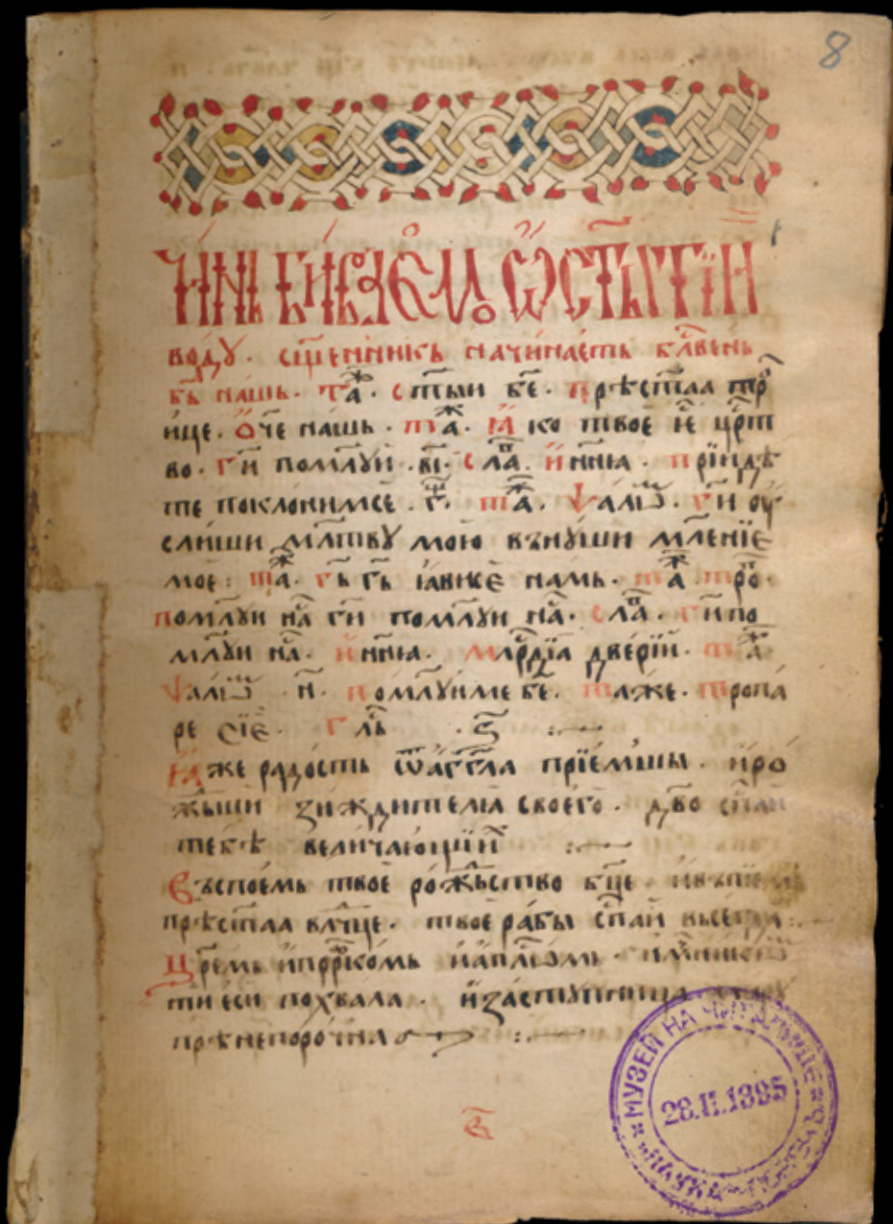 8
ЧИ́НЬ БИ́ВАЄМ ѠСТ҃ЫТЇИ
воду · сщ҃енникь начинаеть бл҃вень
бь҃ нашь · та́ж · ст҃ыи бе҃ · прѣст҃аа трⷪ
ице · ѿче нашь · таж · ꙗко твое е҃ црⷭт
во · ги҃ помл҃уи · вı҃ · слаⷡ · и ннꙗ · прїидѣ
те поклонимсе · г҃ · таж · Ѱалѡⷨ · ги҃ оу
слиши мл҃тву мою вънꙋши мл҃енїе
мое : таж · бь҃ гь҃ ꙗвисе намь · таж троⷫ ·
помл҃ꙋи наⷭ ги҃ помл҃ꙋи наⷭ · слаⷡ · ги҃ по
мл҃ꙋи наⷭ · и ннꙗ · млⷭрдїа двери · таⷤ
Ѱалѡⷨ · н҃ · помл҃ꙋиме бе҃ · таже · тропа
ре сїе · глⷭь · ѕ҃ :
Ꙗже радость ѿ агг҃ла прїемшы · и ро
ж҃ьши зиждителꙗ своего · дв҃о сп҃аи
тебѣ величающїиⷯ :
Въспоемь твое рожⷣьство бц҃е
прѣст҃аа влчⷣце · твое рабы сп҃аи
Цр҃емь и пррⷪкомь и ап҃лѡмь ·
ти еси похвала · и застꙋпница
прѣнепорочнаа :
МУЗЕЙ НА ЧИТАЛИЩЕ
28.II.1895
„НАУКА“